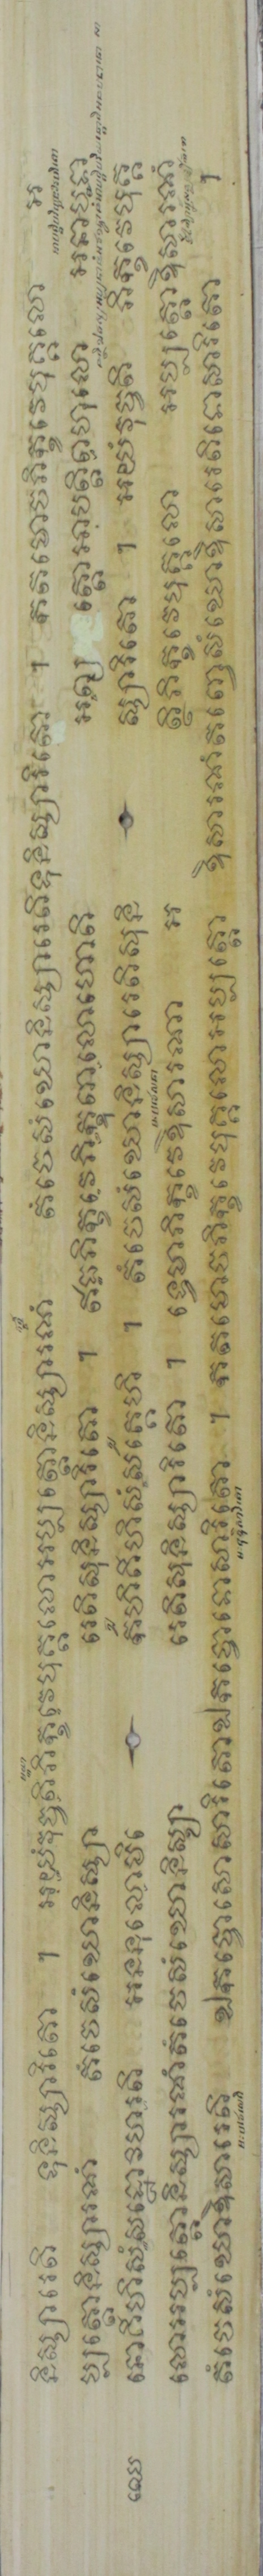 និស្សារេតិ ទុនិស្សារិតោ ។ អយំវុច្ចតិភិក្ខវេបុគ្គលោអប្បត្តោនិស្សារណំ តំចេសំឃោនិស្សារេតិទុនិស្សារិតោ ។ កតមោចភិក្ខវេបុគ្គលោ អ
ប្បត្តោនិស្សារណំ តំចេសំឃោនិស្សា រេតិសុនិស្សារិតោ ។ ឥធភិក្ខវេភិក្ខុពាលោហោតិ អព្យ ត្តោអាបត្តិពហុលោ អនាបទា
នោគីហិសំសដ្ឋោវិហរតិ អននុលោមិ កេហិគីហិសំសគ្គេហិ ។ តំចេសំឃោនិស្សារេតិសុនិ ស្សារិតោ ។ អយំវុច្ចតិ ភិក្ខវេបុគ្គ
លោអប្បត្តោនិស្សារណំតំចេសំឃោនិស្សា រេតិសុនិស្សារិតោ ។ ទ្វេមាភិក្ខវេឱសារណា អ ត្ថិភិក្ខវេបុគ្គលោ អប្បត្តោឱសារណំ
តំចេសំឃោឱសារេតិ ឯកច្ចោសោសារិតោឯកច្ចោទោសារិតោ ។ កតមោចភិក្ខវេបុគ្គលោអប្បត្តោ ឱសារណំតញ្ចេសំឃោឱសារេតិទោសារិតោ ។